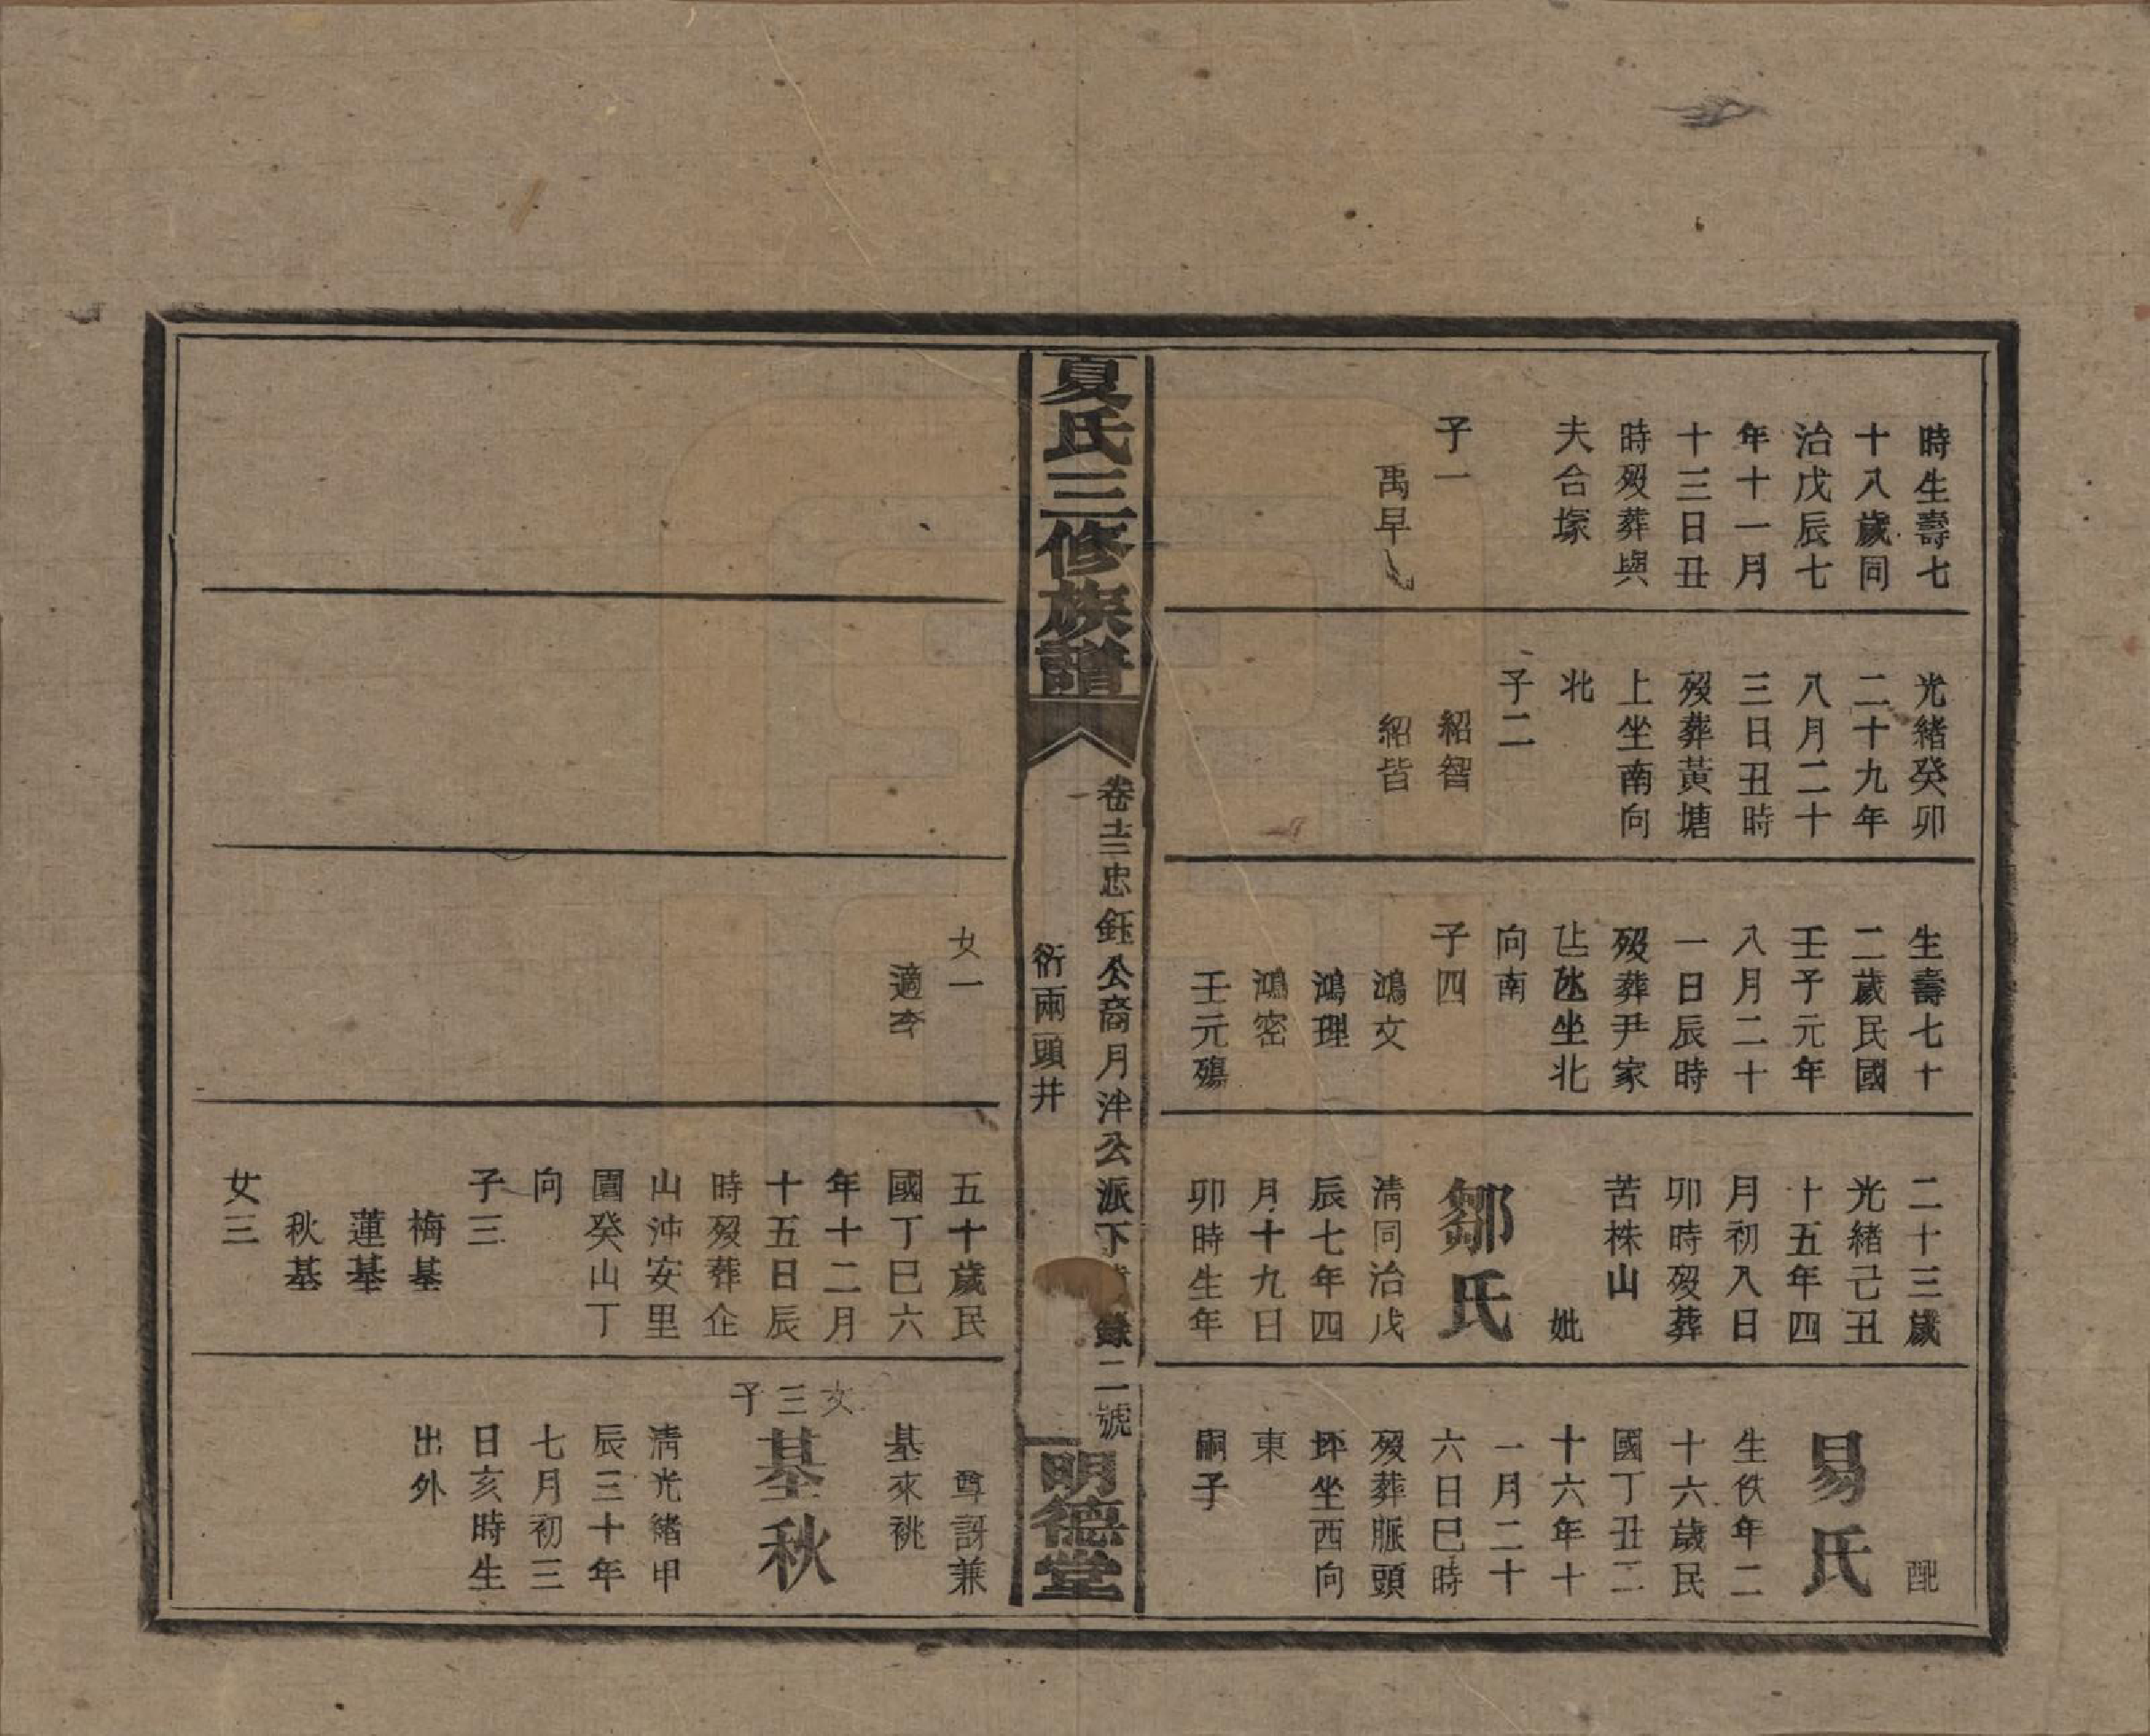 時生壽七
十八歲同
治戊辰七
年十一月
十三日丑
時歿葬與
夫合塚
子一
禹早
光緒癸卯
二十九年
八月二十
三日丑時
歿葬黃塘
上坐南向
北
子二
紹智
紹皆
生壽七十
二歲民國
壬子元年
八月二十
一日辰時
歿葬尹家
坐北
向南
子四
鴻文
鴻理
鴻密
壬元殤
二十三歲
光緒己丑
十五年四
月初八日
卯時歿葬
苦株山
妣
鄒氏
清同治戊
辰七年四
月十九日
卯時生年
配
易氏
生佚年二
十六歲民
國丁丑二
十六年十
一月二十
六日巳時
歿葬脈頭
坪坐西向
東
嗣子
夏氏三修族譜
卷十三忠鈺公裔月泮公派下 錄二號
衍兩頭井
明德堂
女一
適李
五十歲民
國丁巳六
年十二月
十五日辰
時歿葬企
山沖安里
園癸山丁
向
子三
梅基
蓮基
秋基
女三
尊訝兼
基來祧
文三子
基秋
清光緒甲
辰三十年
七月初三
日亥時生
出外